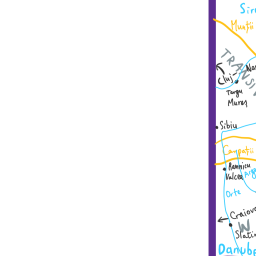 Sir
Munții
TRANSI
Cluj
Târgu
Mureș
Sibiu
Carpații
Râmnicu
Vâlcea
Orte
Craiova
Slatin
Danube